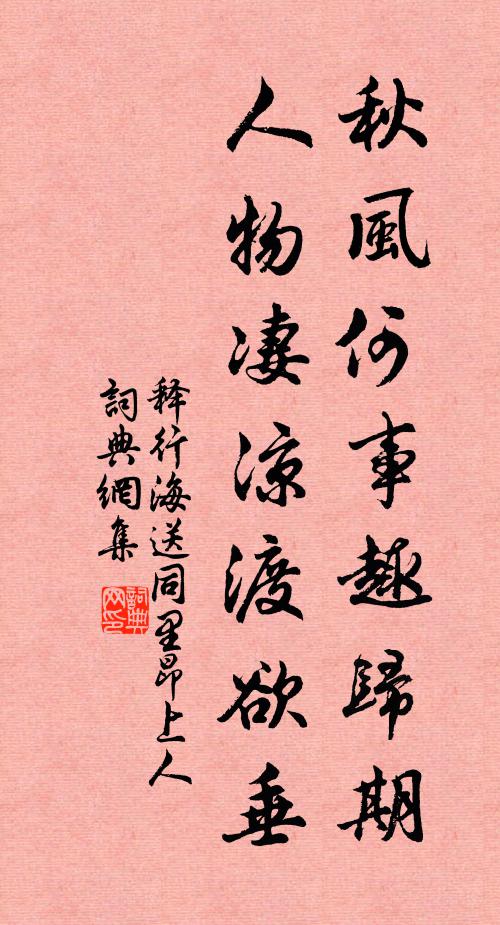 秋風何事趣歸期
人物凄涼渡欲垂
释行海送同里昂上人
詞典網集
詞典网印